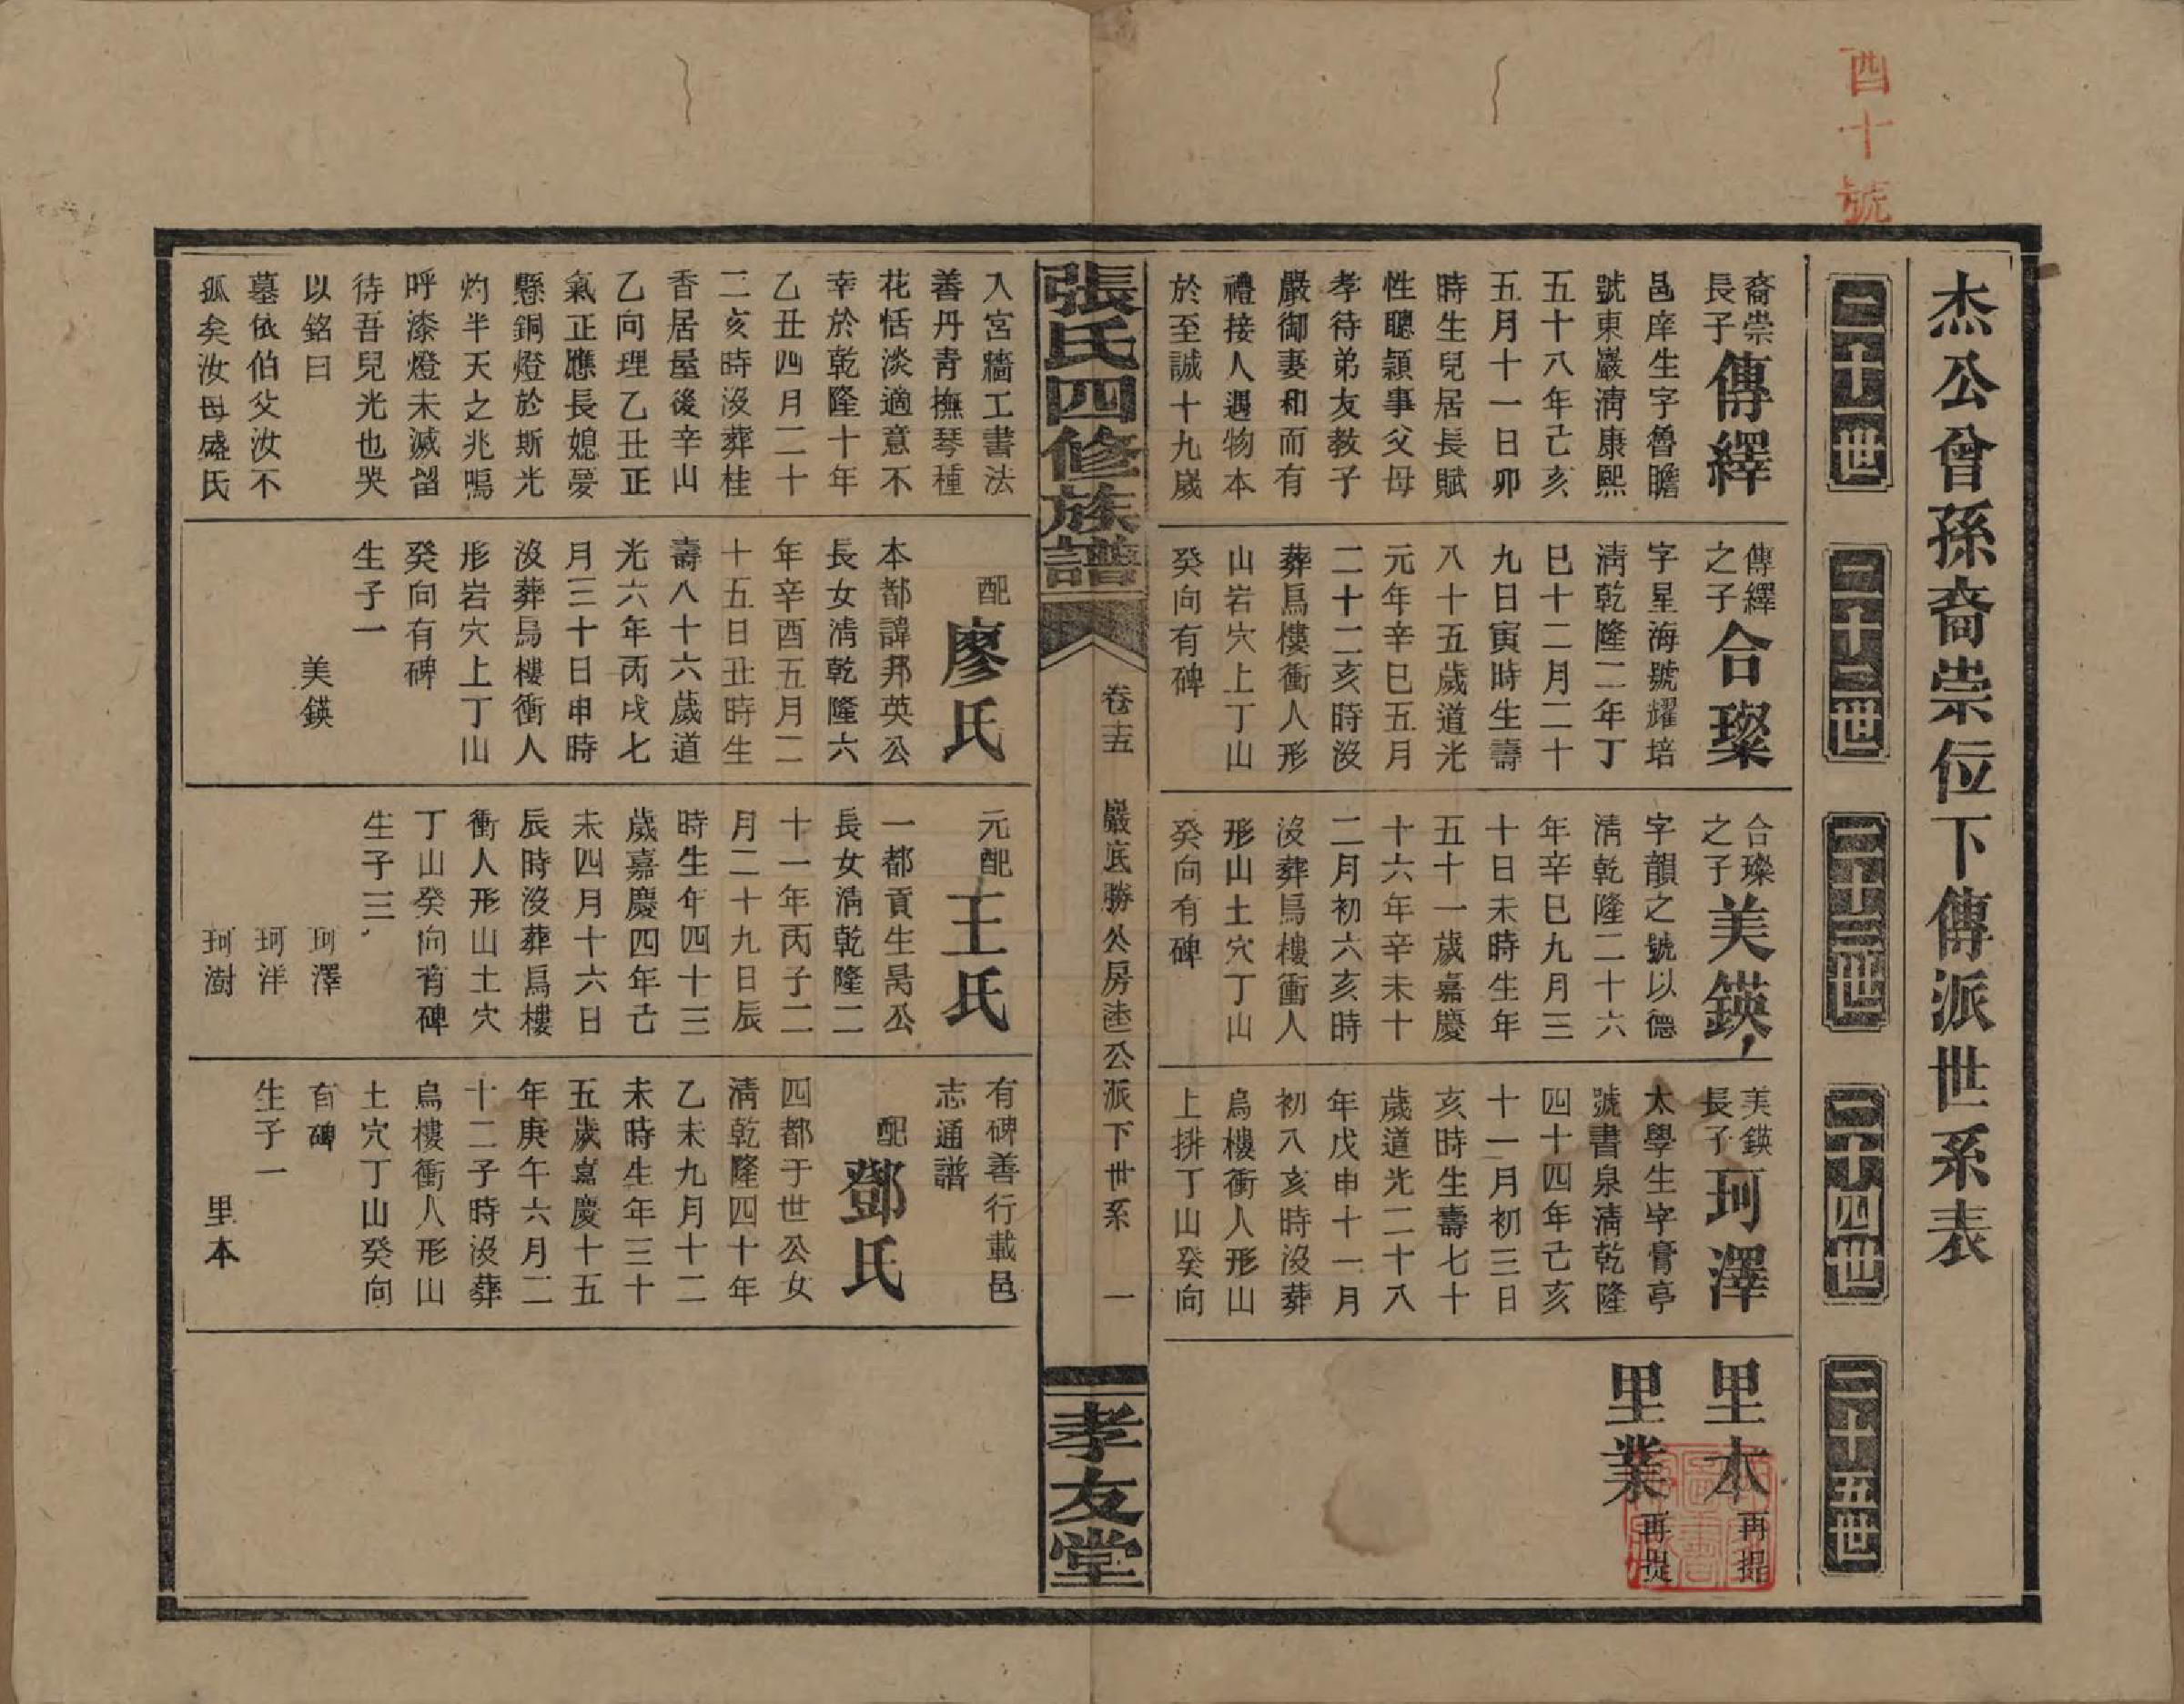 酉十號
杰公曾孫裔崇位下傳派世系表
二十一世
二十二世
二十三世
二十四世
二十五世
裔崇
長子
傳繹
邑庠生字魯瞻
號東巖淸康熙
五十八年己亥
五月十一日卯
時生兒居長賦
性聰穎事父母
孝待弟友教子
嚴御妻和而有
禮接人遇物本
於至誠十九歲
傳繹
之子
合璨
字星海號耀培
淸乾隆二年丁
巳十二月二十
九日寅時生壽
八十五歲道光
元年辛巳五月
二十二亥時沒
葬烏樓衝人形
山岩穴上丁山
癸向有碑
合璨
之子
美鍈
字韻之號以德
淸乾隆二十六
年辛巳九月三
十日未時生年
五十一歲嘉慶
十六年辛未十
二月初六亥時
沒葬烏樓衝人
形山土穴丁山
癸向有碑
美鍈
長子
珂澤
太學生字膏亭
號書泉淸乾隆
四十四年己亥
十一月初三日
亥時生壽七十
歲道光二十八
年戊申十一月
初八亥時沒葬
烏樓衝人形山
上排丁山癸向
里本
再提
里業
再提
張氏四修族譜
卷十五
巖底勝公房逵公派下世系
一
孝友堂
入宮牆工書法
善丹青撫琴種
花恬淡適意不
幸於乾隆十年
乙丑四月二十
二亥時沒葬桂
香居屋後辛山
乙向理乙丑正
氣正應長媳夢
懸銅燈於斯光
灼半天之兆嗚
呼漆燈未滅留
待吾兒光也哭
以銘曰
墓依伯父汝不
孤矣汝母盛氏
配
廖氏
本都諱邦英公
長女淸乾隆六
年辛酉五月二
十五日丑時生
壽八十六歲道
光六年丙戌七
月三十日申時
沒葬烏樓衝人
形岩穴上丁山
癸向有碑
生子一
美鍈
元配
王氏
一都貢生昺公
長女淸乾隆二
十一年丙子二
月二十九日辰
時生年四十三
歲嘉慶四年己
未四月十六日
辰時沒葬烏樓
衝人形山土穴
丁山癸向有碑
生子三
珂澤
珂洋
珂澍
有碑善行載邑
志通譜
配
鄧氏
四都于世公女
淸乾隆四十年
乙未九月十二
未時生年三十
五歲嘉慶十五
年庚午六月二
十二子時沒葬
烏樓衝人形山
土穴丁山癸向
有碑
生子一
里本